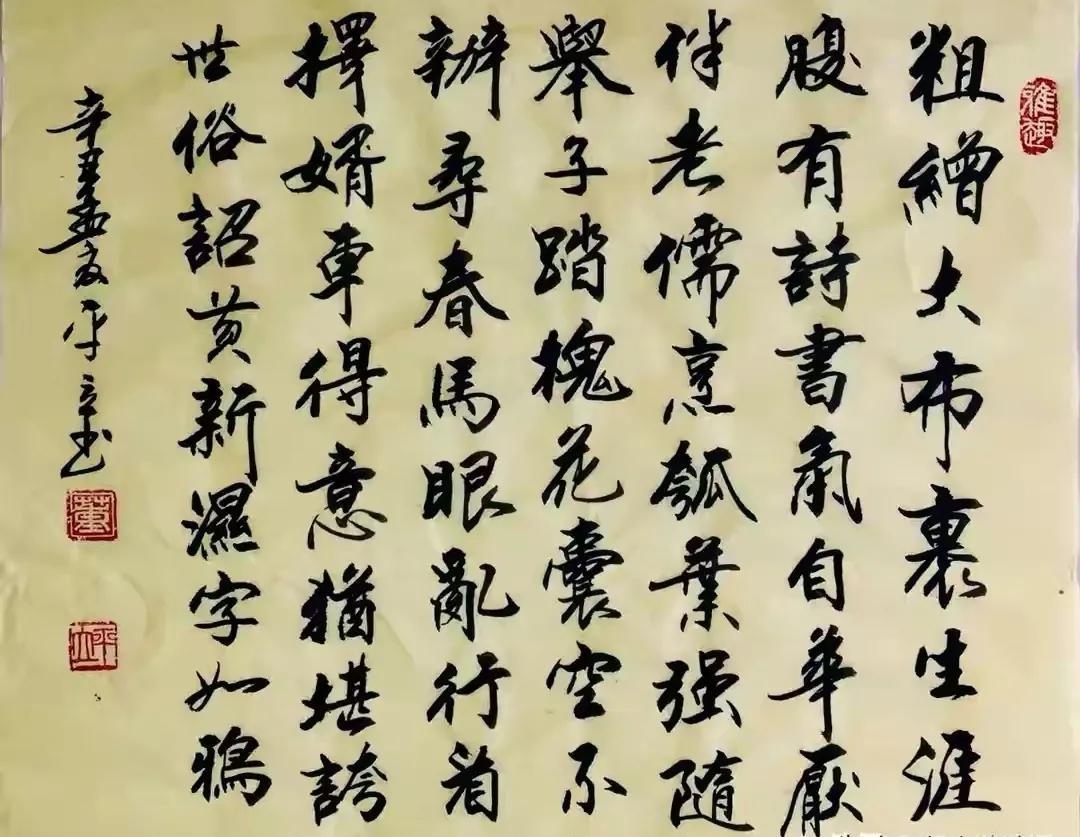 雅趣
粗繒大布裹生涯
腹有詩書氣自華厭
伴老儒烹瓠葉强隨
舉子踏槐花囊空不
辦尋春馬眼亂行看
擇婿車得意猶堪誇
世俗詔黄新濕字如鴉
辛丑孟夏平立书
董
平立